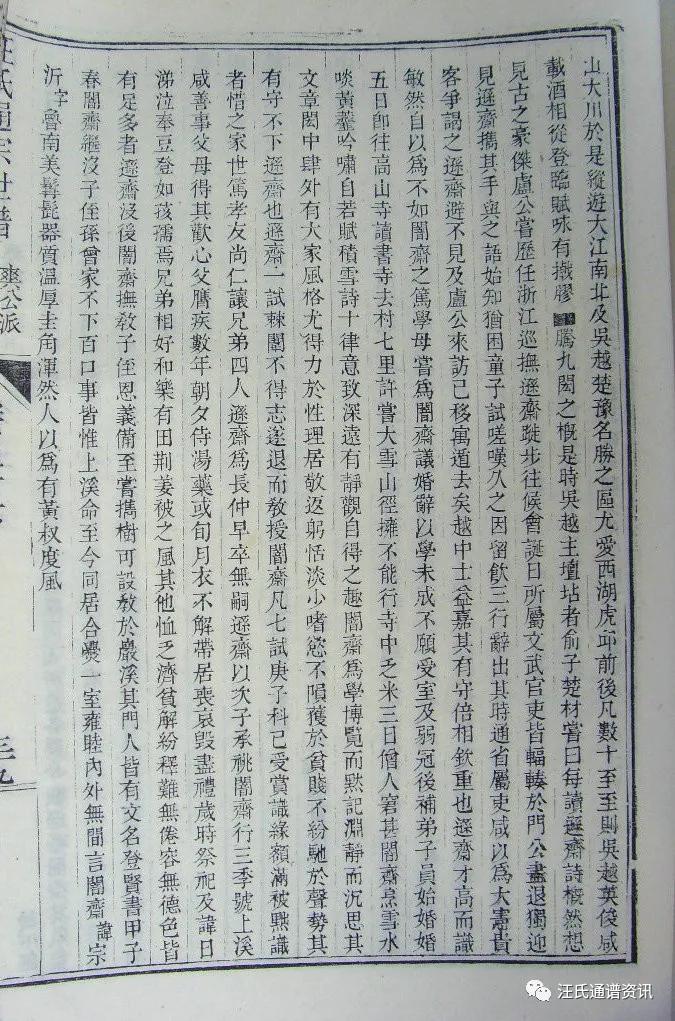 山大川於是縱遊大江南北及吳越楚豫名勝之區尤愛西湖虎邱前後凡數十至至則吳越英俊咸
載酒相從登臨賦咏有撒膠騰九閎之槪是時吳越主壇坫者俞子楚材嘗曰每讀遯齋詩槪然想
見古之豪傑盧公嘗歷任浙江巡撫遯齋徙步往候會誕日所屬文武官吏皆輻輳於門公盡退獨迎
見遯齋攜其手與之語始知猶困童子試嗟嘆久之因留飲三行辭出其時通省屬吏咸以爲大憲貴
客爭謁之遯齋避不見及盧公來訪已移寓遁去矣越中士益嘉其有守倍相欽重也遯齋才高而識
敏然自以爲不如闇齋之篤學母嘗爲闇齋議婚辭以學未成不願受室及弱冠後補弟子員始婚婚
五日卽往高山寺讀書寺去村七里許嘗大雪山徑擁不能行寺中乏米三日僧人窘甚闇齋烹雪水
啖黃虀吟嘯自若賦積雪詩十律意致深遠有靜觀自得之趣闇齋爲學博覽而黙記淵靜而沉思其
文章閎中肆外有大家風格尤得力於性理居敬返躬恬淡小嗜慾不隕獲於貧賤不紛馳於聲勢其
有守不下遯齋也遯齋一試棘闈不得志遂退而敎授闇齋凡七試庚子科已受賞識緣額滿被黜識
者惜之家世篤孝友尚仁讓兄弟四人遯齋爲長仲早卒無嗣遯齋以次子承祧闇齋行三季號上溪
咸善事父母得其歡心父膺疾數年朝夕侍湯藥或旬月衣不解帶居喪哀毀盡禮歲時祭祀及諱日
涕泣奉豆登如孩孺焉兄弟相好和樂有田荆姜被之風其他恤乏濟貧解紛釋難無倦容無德色皆
有足多者遯齋沒後闇齋撫敎子侄恩義備至嘗攜樹可設敎於嚴溪其門人皆有文名登賢書甲子
春闇齋繼沒子侄孫曾家不下百口事皆惟上溪命至今同居合爨一室雍睦內外無間言闇齋諱宗
沂字魯南美鬚髭器質溫厚圭角渾然人以爲有黃叔度風
汪氏通宗世譜
爽公派
三九
汪氏通谱资讯